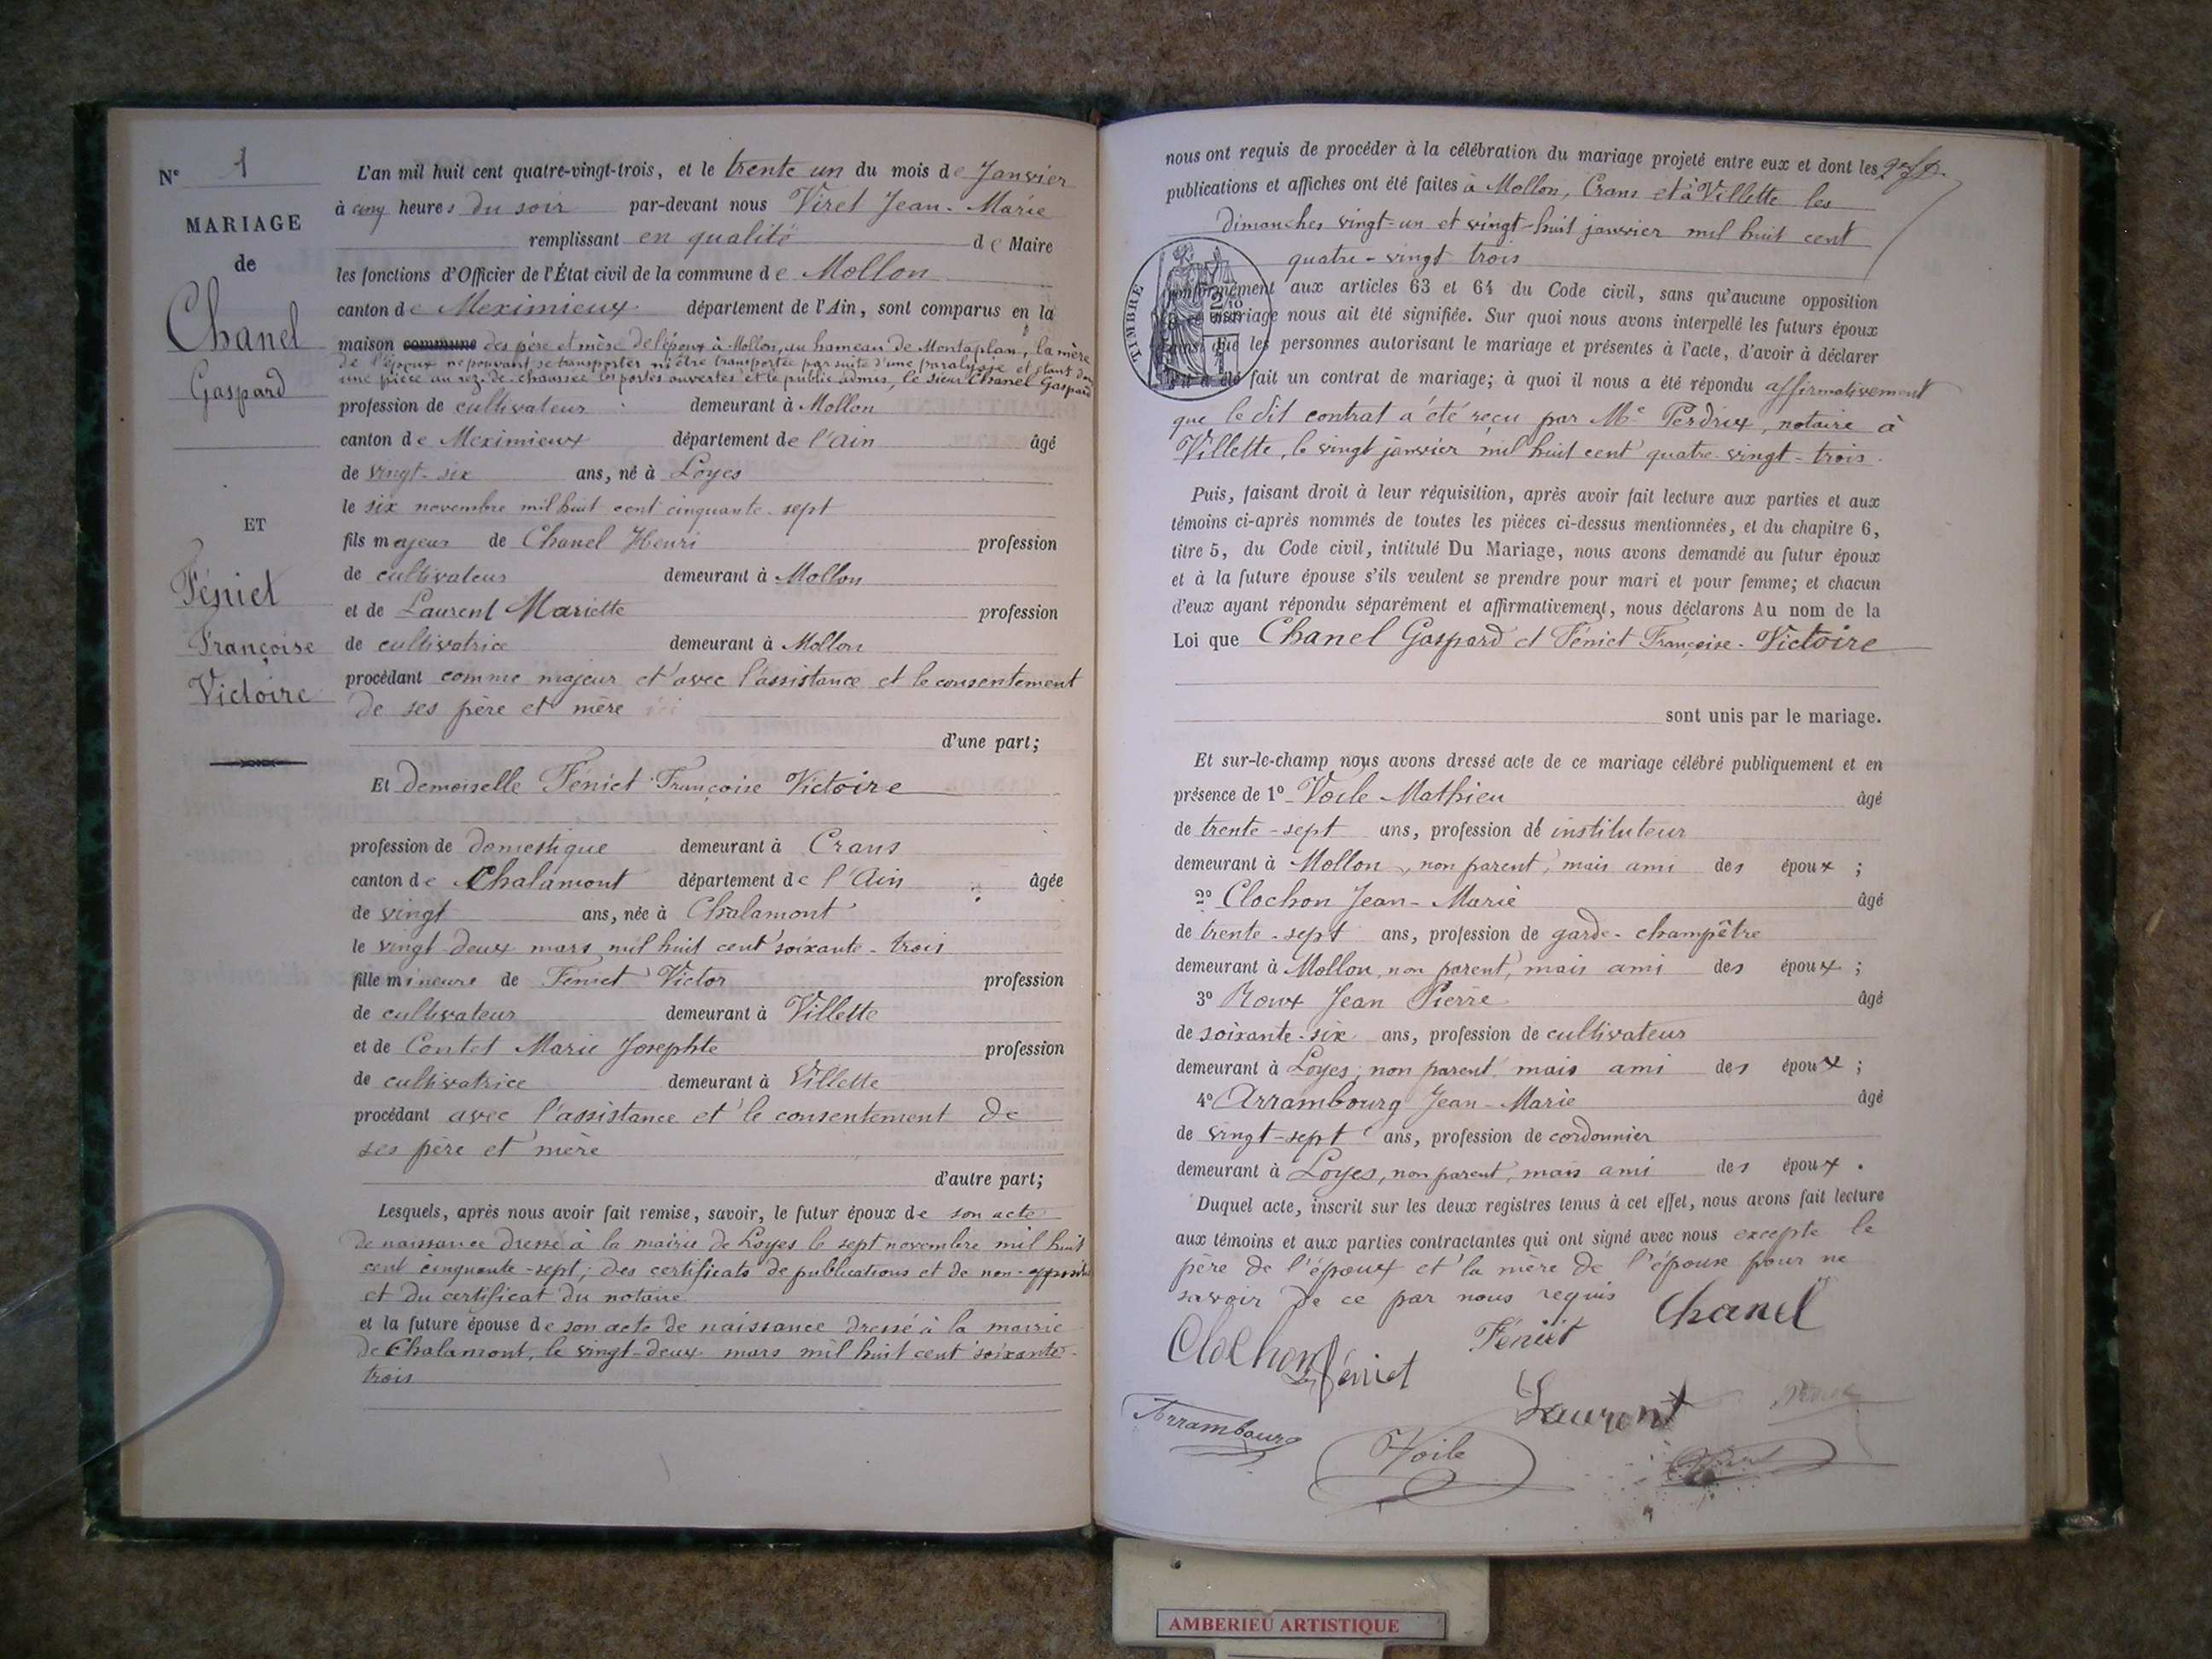 N° 1
MARIAGE
de
Chanel
Gaspard
ET
Féniet
Françoise
Victoire
L'an mil huit cent quatre-vingt-trois, et le trente un du mois de Janvier
à cinq heures du soir par-devant nous Viret Jean-Marie
remplissant en qualité de Maire
les fonctions d'Officier de l'État civil de la commune de Mollon
canton de Meximieux département de l'Ain, sont comparus en la
maison commune des père et mère de l'époux à Mollon, au hameau de Montaplan, la mère
de l'époux ne pouvant se transporter ni être transportée par suite d'une paralysie et étant dans
une pièce au rez-de-chaussée les portes ouvertes et le public admis, le sieur Chanel Gaspard
profession de cultivateur demeurant à Mollon
canton de Meximieux département de l'Ain âgé
de vingt-six ans, né à Loyes
le six novembre mil huit cent cinquante-sept
fils majeur de Chanel Henri profession
de cultivateur demeurant à Mollon
et de Laurent Mariette profession
de cultivatrice demeurant à Mollon
procédant comme majeur et avec l'assistance et le consentement
de ses père et mère
d'une part;
Et Demoiselle Féniet Françoise Victoire
profession de domestique demeurant à Crans
canton de Chalamont département de l'Ain âgée
de vingt ans, née à Chalamont
le vingt-deux mars mil huit cent soixante-trois
fille mineure de Féniet Victor profession
de cultivateur demeurant à Villette
et de Contet Marie Josephte profession
de cultivatrice demeurant à Villette
procédant avec l'assistance et le consentement de
ses père et mère
d'autre part;
Lesquels, après nous avoir fait remise, savoir, le futur époux de son acte
de naissance dressé à la mairie de Loyes le sept novembre mil huit
cent cinquante-sept; des certificats de publications et de non-opposition
et du certificat du notaire
et la future épouse de son acte de naissance dressé à la mairie
de Chalamont, le vingt-deux mars mil huit cent soixante-
trois
nous ont requis de procéder à la célébration du mariage projeté entre eux et dont les
publications et affiches ont été faites à Mollon, Crans et à Villette les
dimanches vingt-un et vingt-huit janvier mil huit cent
quatre-vingt trois
TIMBRE
conformément aux articles 63 et 64 du Code civil, sans qu'aucune opposition
à ce mariage nous ait été signifiée. Sur quoi nous avons interpellé les futurs époux
ainsi que les personnes autorisant le mariage et présentes à l'acte, d'avoir à déclarer
s'il a été fait un contrat de mariage; à quoi il nous a été répondu affirmativement
que le dit contrat a été reçu par Me Perdrix, notaire à
Villette, le vingt janvier mil huit cent quatre-vingt-trois.
Puis, faisant droit à leur réquisition, après avoir fait lecture aux parties et aux
témoins ci-après nommés de toutes les pièces ci-dessus mentionnées, et du chapitre 6,
titre 5, du Code civil, intitulé Du Mariage, nous avons demandé au futur époux
et à la future épouse s'ils veulent se prendre pour mari et pour femme; et chacun
d'eux ayant répondu séparément et affirmativement, nous déclarons Au nom de la
Loi que Chanel Gaspard et Féniet Françoise-Victoire
sont unis par le mariage.
Et sur-le-champ nous avons dressé acte de ce mariage célébré publiquement et en
présence de 1° Voile Mathieu âgé
de trente-sept ans, profession de instituteur
demeurant à Mollon, non parent, mais ami des époux ;
2° Clochon Jean-Marie âgé
de trente-sept ans, profession de garde-champêtre
demeurant à Mollon, non parent, mais ami des époux ;
3° Roux Jean Pierre âgé
de soixante-six ans, profession de cultivateur
demeurant à Loyes, non parent mais ami des époux ;
4° Arrambourg Jean-Marie âgé
de vingt-sept ans, profession de cordonnier
demeurant à Loyes, non parent, mais ami des époux .
Duquel acte, inscrit sur les deux registres tenus à cet effet, nous avons fait lecture
aux témoins et aux parties contractantes qui ont signé avec nous excepté le
père de l'époux et la mère de l'épouse pour ne
savoir de ce par nous requis Chanel
Clochon Féniet Féniet
Laurent
Arrambourg Voile
Viret
AMBERIEU ARTISTIQUE